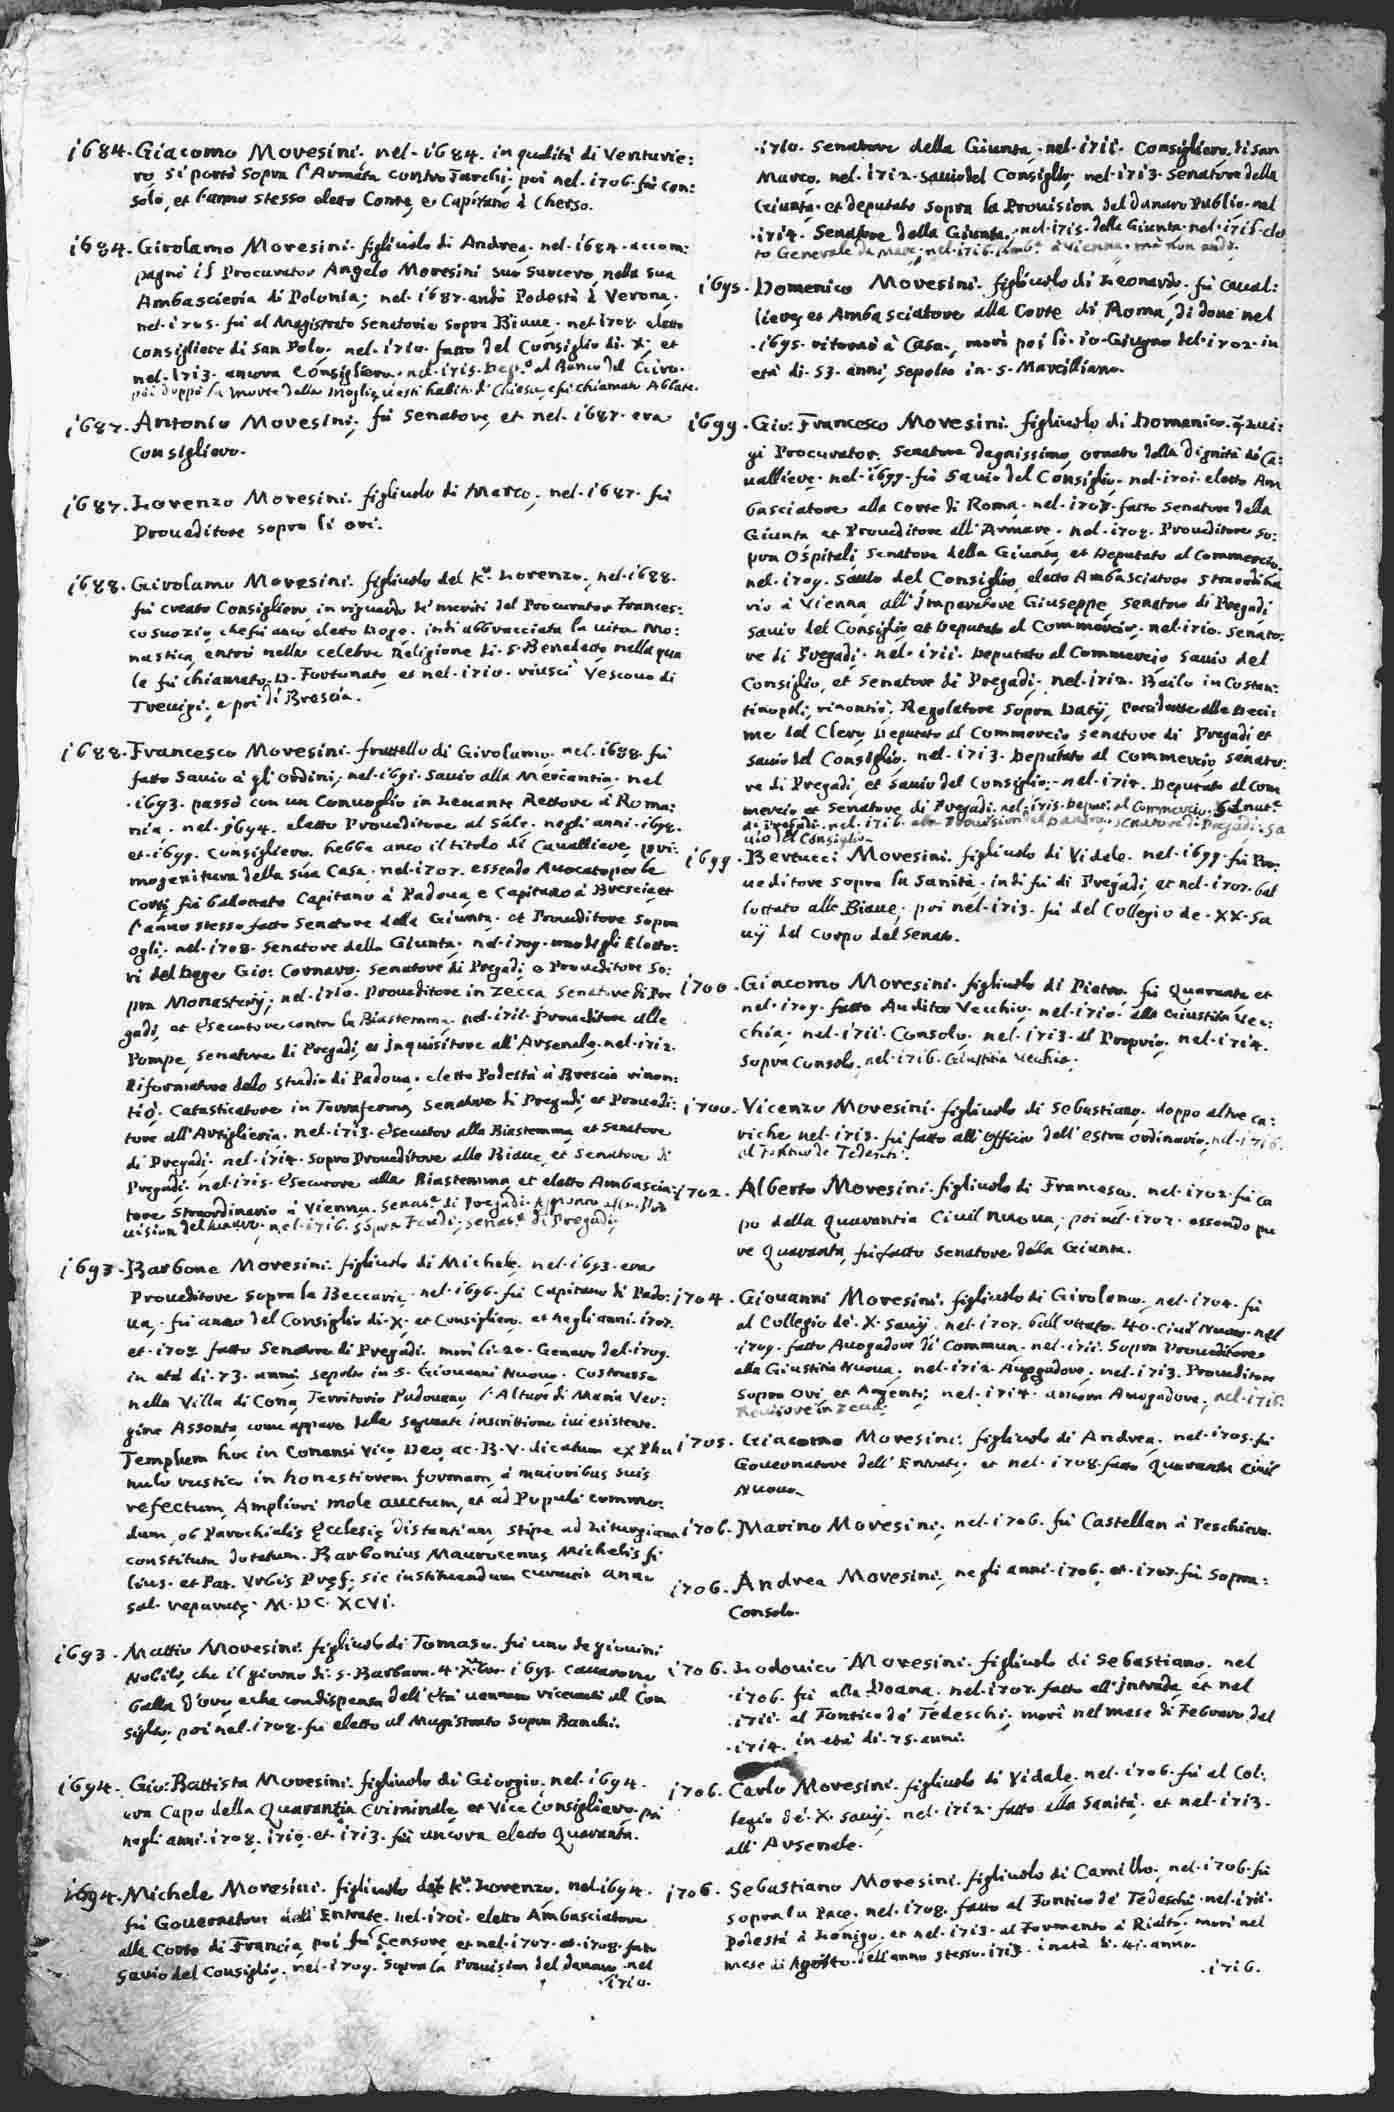 1684. Giacomo Moresini, nel. 1684. in qualità di Venturie:
ro si portò sopra l'Armata contro Turchi; poi nel. 1706. fù con:
solo, et l'anno stesso eletto Conte, e Capitano à Cherso.
1684. Girolamo Moresini. figliuolo di Andrea, nel. 1684. accom:
pagnò il Procurator Angelo Moresini suo suocero, nella sua
Ambascieria di Polonia; nel. 1687. andò Podestà à Verona,
nel. 1705. fù al Magistrato Senatorio sopra Biave. nel. 1708. eletto
Consigliere di San Polo, nel. 1710. fatto del Consiglio di. X; et
nel. 1713. ancora Consigliero. nel. 1715. Dep.º al Banco del Giro.
poi doppò la morte della moglie, vestì habito di Chiesa, e fù chiamato Abbate.
1687. Antonio Moresini, fù Senatore, et nel. 1687. era
Consigliero.
1687. Lorenzo Moresini. figliuolo di Marco, nel. 1687. fù
Proveditore sopra li ori.
1688. Girolamo Moresini. figliuolo del K.r Lorenzo, nel. 1688.
fù creato Consigliero, in riguardo de' meriti del Procurator Frances:
co suo zio, che fù anco eletto Doge. indi abbracciata la vita Mo:
nastica, entrò nella celebre Religione di. S. Benedetto, nella qua
le fù chiamato. D. Fortunato, et nel. 1710. riuscì Vescovo di
Trevigi, e poi di Brescia.
1688. Francesco Moresini. fratello di Girolamo, nel. 1688. fù
fatto Savio à gli ordini, nel. 1691. Savio alla Mercantia, nel
.1693. passò con un Convoglio in Levante Rettore à Roma:
nia. nel. 1694. eletto Proveditore al Sale. negli anni. 1698.
et. 1699. Consigliero. hebbe anco il titolo di Cavalliere, pri:
mogenitura della sua Casa. nel. 1707. essendo Avocato per le
Corti, fù balottato Capitano à Padova, e Capitano à Brescia, et
l'anno stesso fatto Senatore della Giunta. et Proveditore sopra
ogli. nel. 1708. Senatore della Giunta. nel. 1709. uno degli Eletto:
ri del Doge Gio: Cornaro, Senatore di Pregadi, e Proveditore so:
pra Monasterij; nel. 1710. Proveditore in Zecca, Senatore di Pre
gadi, et Esecutore contro la Biastemma. nel. 1711. Proveditore alle
Pompe, senatore di Pregadi, et Inquisitore all'Arsenale, nel. 1712.
Riformatore dello Studio di Padova. eletto Podestà à Brescia rinon:
tiò. Catasticatore in Terraferma, Senatore di Pregadi, et Provedi:
tore all'Artiglieria. nel. 1713. Esecutor alla Biastemma, et Senatore
di Pregadi. nel. 1714. Sopra Proveditore alle Biave, et Senatore di
Pregadi. nel. 1715. Esecutore alla Biastemma, et eletto Ambascia:
tore Straordinario à Vienna. Senat.e di Pregadi. Aggionto alla Pro
vision del danaro, nel. 1716. sopra Feudi, Senat.e di Pregadi,
1693. Barbone Moresini. figliuolo di Michele, nel. 1693. era
Proveditore sopra la Beccarie. nel. 1696. fù Capitano di Pado:
va, fù anco del Consiglio di. X, et Consigliero. et negli anni. 1707.
et. 1708. fatto Senatore di Pregadi. morì li. 20. Genaro del. 1709.
in età di. 73. anni, sepolto in S. Giovanni Nuovo. Costrusse
nella Villa di Cona, Territorio Padovano, l'Altare di Maria Ver:
gine Assonta, come appare dalla seguente inscrittione ivi esistente.
Templum hoc in Conensi Vico, Deo, ac. B. V. dicatum ex Pha
nulo rustico in honestiorem formam, à maioribus suis
refectum, Ampliori mole auctum, et ad Populi commo:
dum, ob Parochialis Ecclesie distantiam, stipe ad Liturgiam
constituta dotatum. Barbonius Maurocenus Michelis fi
lius. et Pat. Urbis Pref: sic instituendum curavit anno
sal. reparate. M. DC. XCVI.
1693. Mattio Moresini. figliuolo di Tomaso. fù uno de giovini
Nobili, che il giorno di. S. Barbara. 4. Xbre. 1693. cavarono
balla d'oro, e che con dispensa dell'età vennero ricevuti al Con
siglio, poi nel. 1708. fù eletto al Magistrato sopra Banchi.
1694. Gio: Battista Moresini. figliuolo di Giorgio, nel. 1694.
era Capo della Quarantia Criminale, et Vice Consigliero. poi
negli anni. 1708. 1710. et. 1713. fù ancora eletto Quaranta.
1694. Michele Moresini. figliuolo del K.r Lorenzo. nel. 1694.
fù Governatore dell'Entrate. nel. 1701. eletto Ambasciatore
alla Corte di Francia, poi fù Censore, et nel. 1707. et. 1708. fatto
Savio del Consiglio. nel. 1709. sopra la Provision del danaro nel
.1710.
.1710. Senatore della Giunta. nel. 1711. Consigliero di San
Marco. nel. 1712. Savio del Consiglio, nel. 1713. Senatore della
Giunta. et deputato sopra la Provision del danaro Publico. nel
.1714. Senatore della Giunta. nel. 1715. della Giunta. nel. 1715. elet
to Generale da Mare, nel. 1716. Amb.r à Vienna. mà non andò.
1695. Domenico Moresini. figliuolo di Leonardo. fù Caval:
liere, et Ambasciatore alla Corte di Roma, di dove nel
.1695. ritornò à Casa, morì poi li. 10. Giugno del. 1702. in
età di. 53. anni, sepolto in. S. Marcilliano.
1699. Gio: Francesco Moresini. figliuolo di Domenico. q. Lui:
gi Procurator. Senatore degnissimo, ornato della dignità di Ca:
valliere. nel. 1699. fù Savio del Consiglio. nel. 1701. eletto Am
basciatore alla Corte di Roma. nel. 1707. fatto Senatore della
Giunta et Proveditore all'Armare. nel. 1708. Proveditore so:
pra Ospitali, Senatore della Giunta, et Deputato al Commercio.
nel. 1709. Savio del Consiglio, eletto Ambasciatore straordina
rio à Vienna all'Imperatore Giuseppe, Senatore di Pregadi
Savio del Consiglio, et Deputato al Commercio. nel. 1710. Senato:
re di Pregadi. nel. 1711. Deputato al Commercio Savio del
Consiglio, et Senatore di Pregadi. nel. 1712. Bailo in Costan:
tinopoli, rinontiò, Regolatore sopra Datij, Presidente alle Deci:
me del Clero, Deputato al Commercio Senatore di Pregadi et
Savio del Consiglio. nel. 1713. Deputato al Commercio, Senato:
re di Pregadi, et Savio del Consiglio. nel. 1714. Deputato al Com
mercio et Senatore di Pregadi. nel. 1715. Deput: al Commercio, Senat.e
di Pregadi. nel. 1716. alla Provision del Danaro, Senatore di Pregadi. Sa
vio del Consiglio.
1699. Bertucci Moresini. figliuolo di Vidale. nel. 1699. fù Pro
veditore sopra la Sanità. indi fù di Pregadi, et nel. 1707. bal
lottato alle Biave; poi nel. 1713. fù del Collegio de. XX. Sa
vij del Corpo del Senato.
1700. Giacomo Moresini. figliuolo di Pietro. fù Quaranta et
nel. 1709. fatto Auditor Vecchio. nel. 1710. alla Giustitia Vec:
chia. nel. 1711. Consolo, nel. 1713. al Proprio, nel. 1714.
Sopra Consolo, nel. 1716. Giustitia Vecchia.
1700. Vicenzo Moresini. figliuolo di Sebastiano, doppo altre ca:
riche nel. 1713. fù fatto all'Officio dell'Estra ordinario, nel. 1716.
al Fontico de Tedeschi.
1702. Alberto Moresini. figliuolo di Francesco, nel. 1702. fù Ca
po della Quarantia Civil Nuova; poi nel. 1707. essendo pu
re Quaranta, fù fatto Senatore della Giunta.
1704. Giovanni Moresini. figliuolo di Girolamo, nel. 1704. fù
al Collegio de'. X. Savij. nel. 1707. ballottato. 40. Civil Nuovo. nel
.1709. fatto Avogador di Commun. nel. 1711. Sopra Proveditore
alla Giustitia Nuova. nel. 1712. Avogadore. nel. 1713. Proveditore
sopra Ori, et Argenti; nel. 1714. ancora Avogadore; nel. 1716.
Revisore in Zecca.
1705. Giacomo Moresini. figliuolo di Andrea, nel. 1705. fù
Governatore dell'Entrate; et nel. 1708. fatto Quaranta Civil
Nuovo.
1706. Marino Moresini, nel. 1706. fù Castellan à Peschiera.
1706. Andrea Moresini, negli anni. 1706. et. 1707. fù Sopra:
Consolo.
1706. Lodovico Moresini. figliuolo di Sebastiano, nel
.1706. fù alla Doana, nel. 1707. fatto all'Intrada, et nel
.1711. al Fontico de' Tedeschi; morì nel mese di Febraro del
.1714. in età di. 75. anni.
1706. Carlo Moresini. figliuolo di Vidale, nel. 1706. fù al Col:
legio de'. X. Savij. nel. 1712. fatto alla Sanità. et nel. 1713.
all'Arsenale.
1706. Sebastiano Moresini. figliuolo di Camillo, nel. 1706. fù
sopra la Pace. nel. 1708. fatto al Fontico de' Tedeschi, nel. 1711.
Podestà à Lonigo. et nel. 1713. al Formento à Rialto. morì nel
mese di Agosto. dell'anno stesso. 1713. in età di. 41. anno.
.1716.